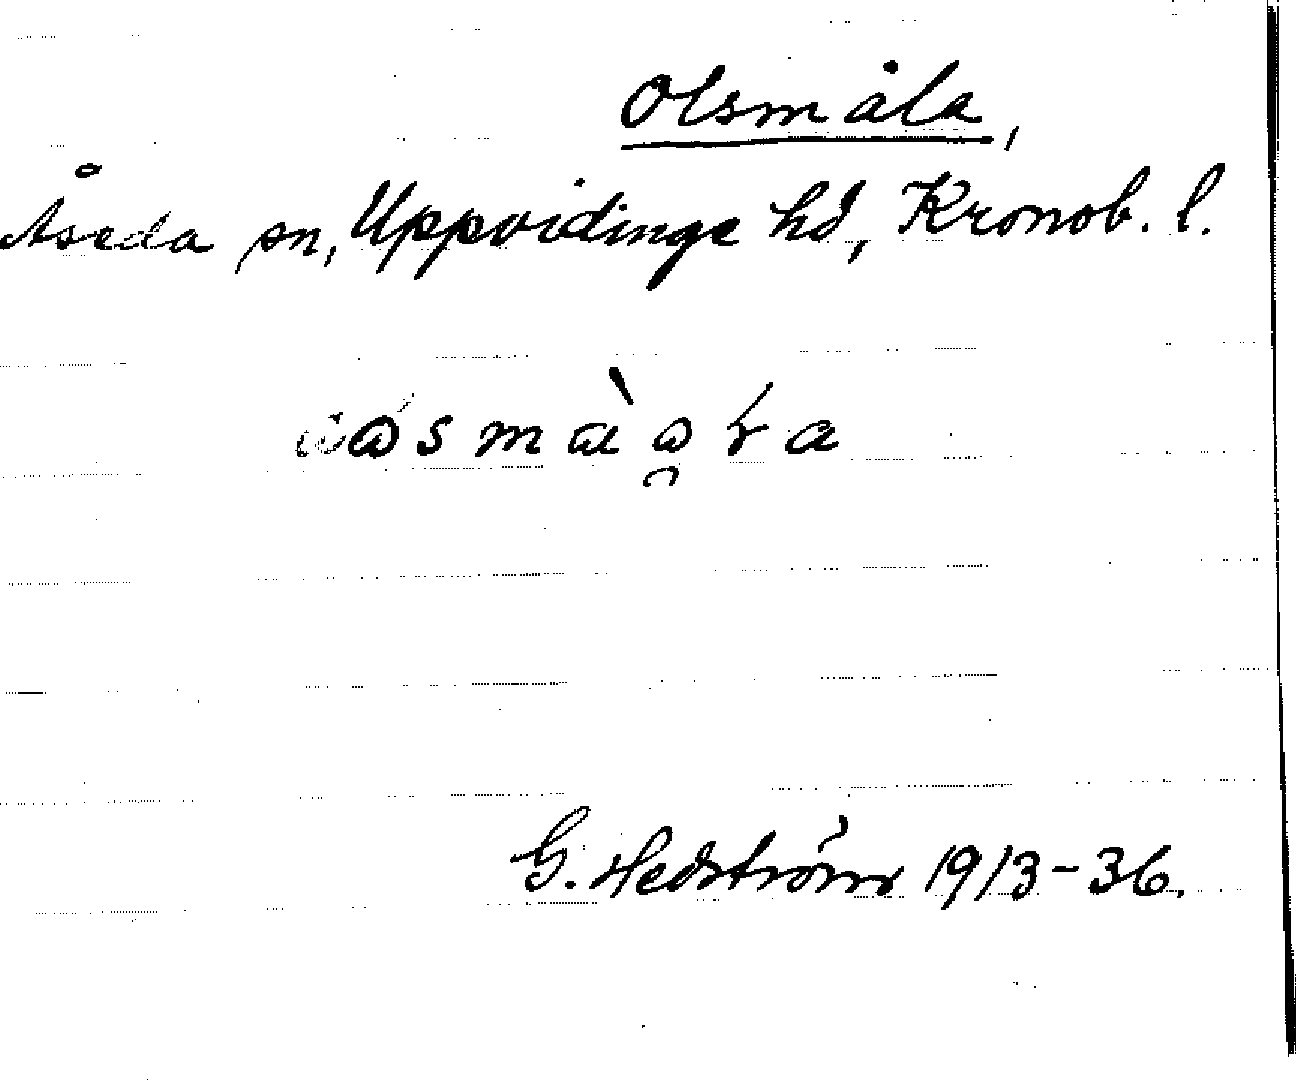 Olsmåla,
Åseda sn, Uppvidinge hd, Kronob. l.
G. Hedström 1913-36.